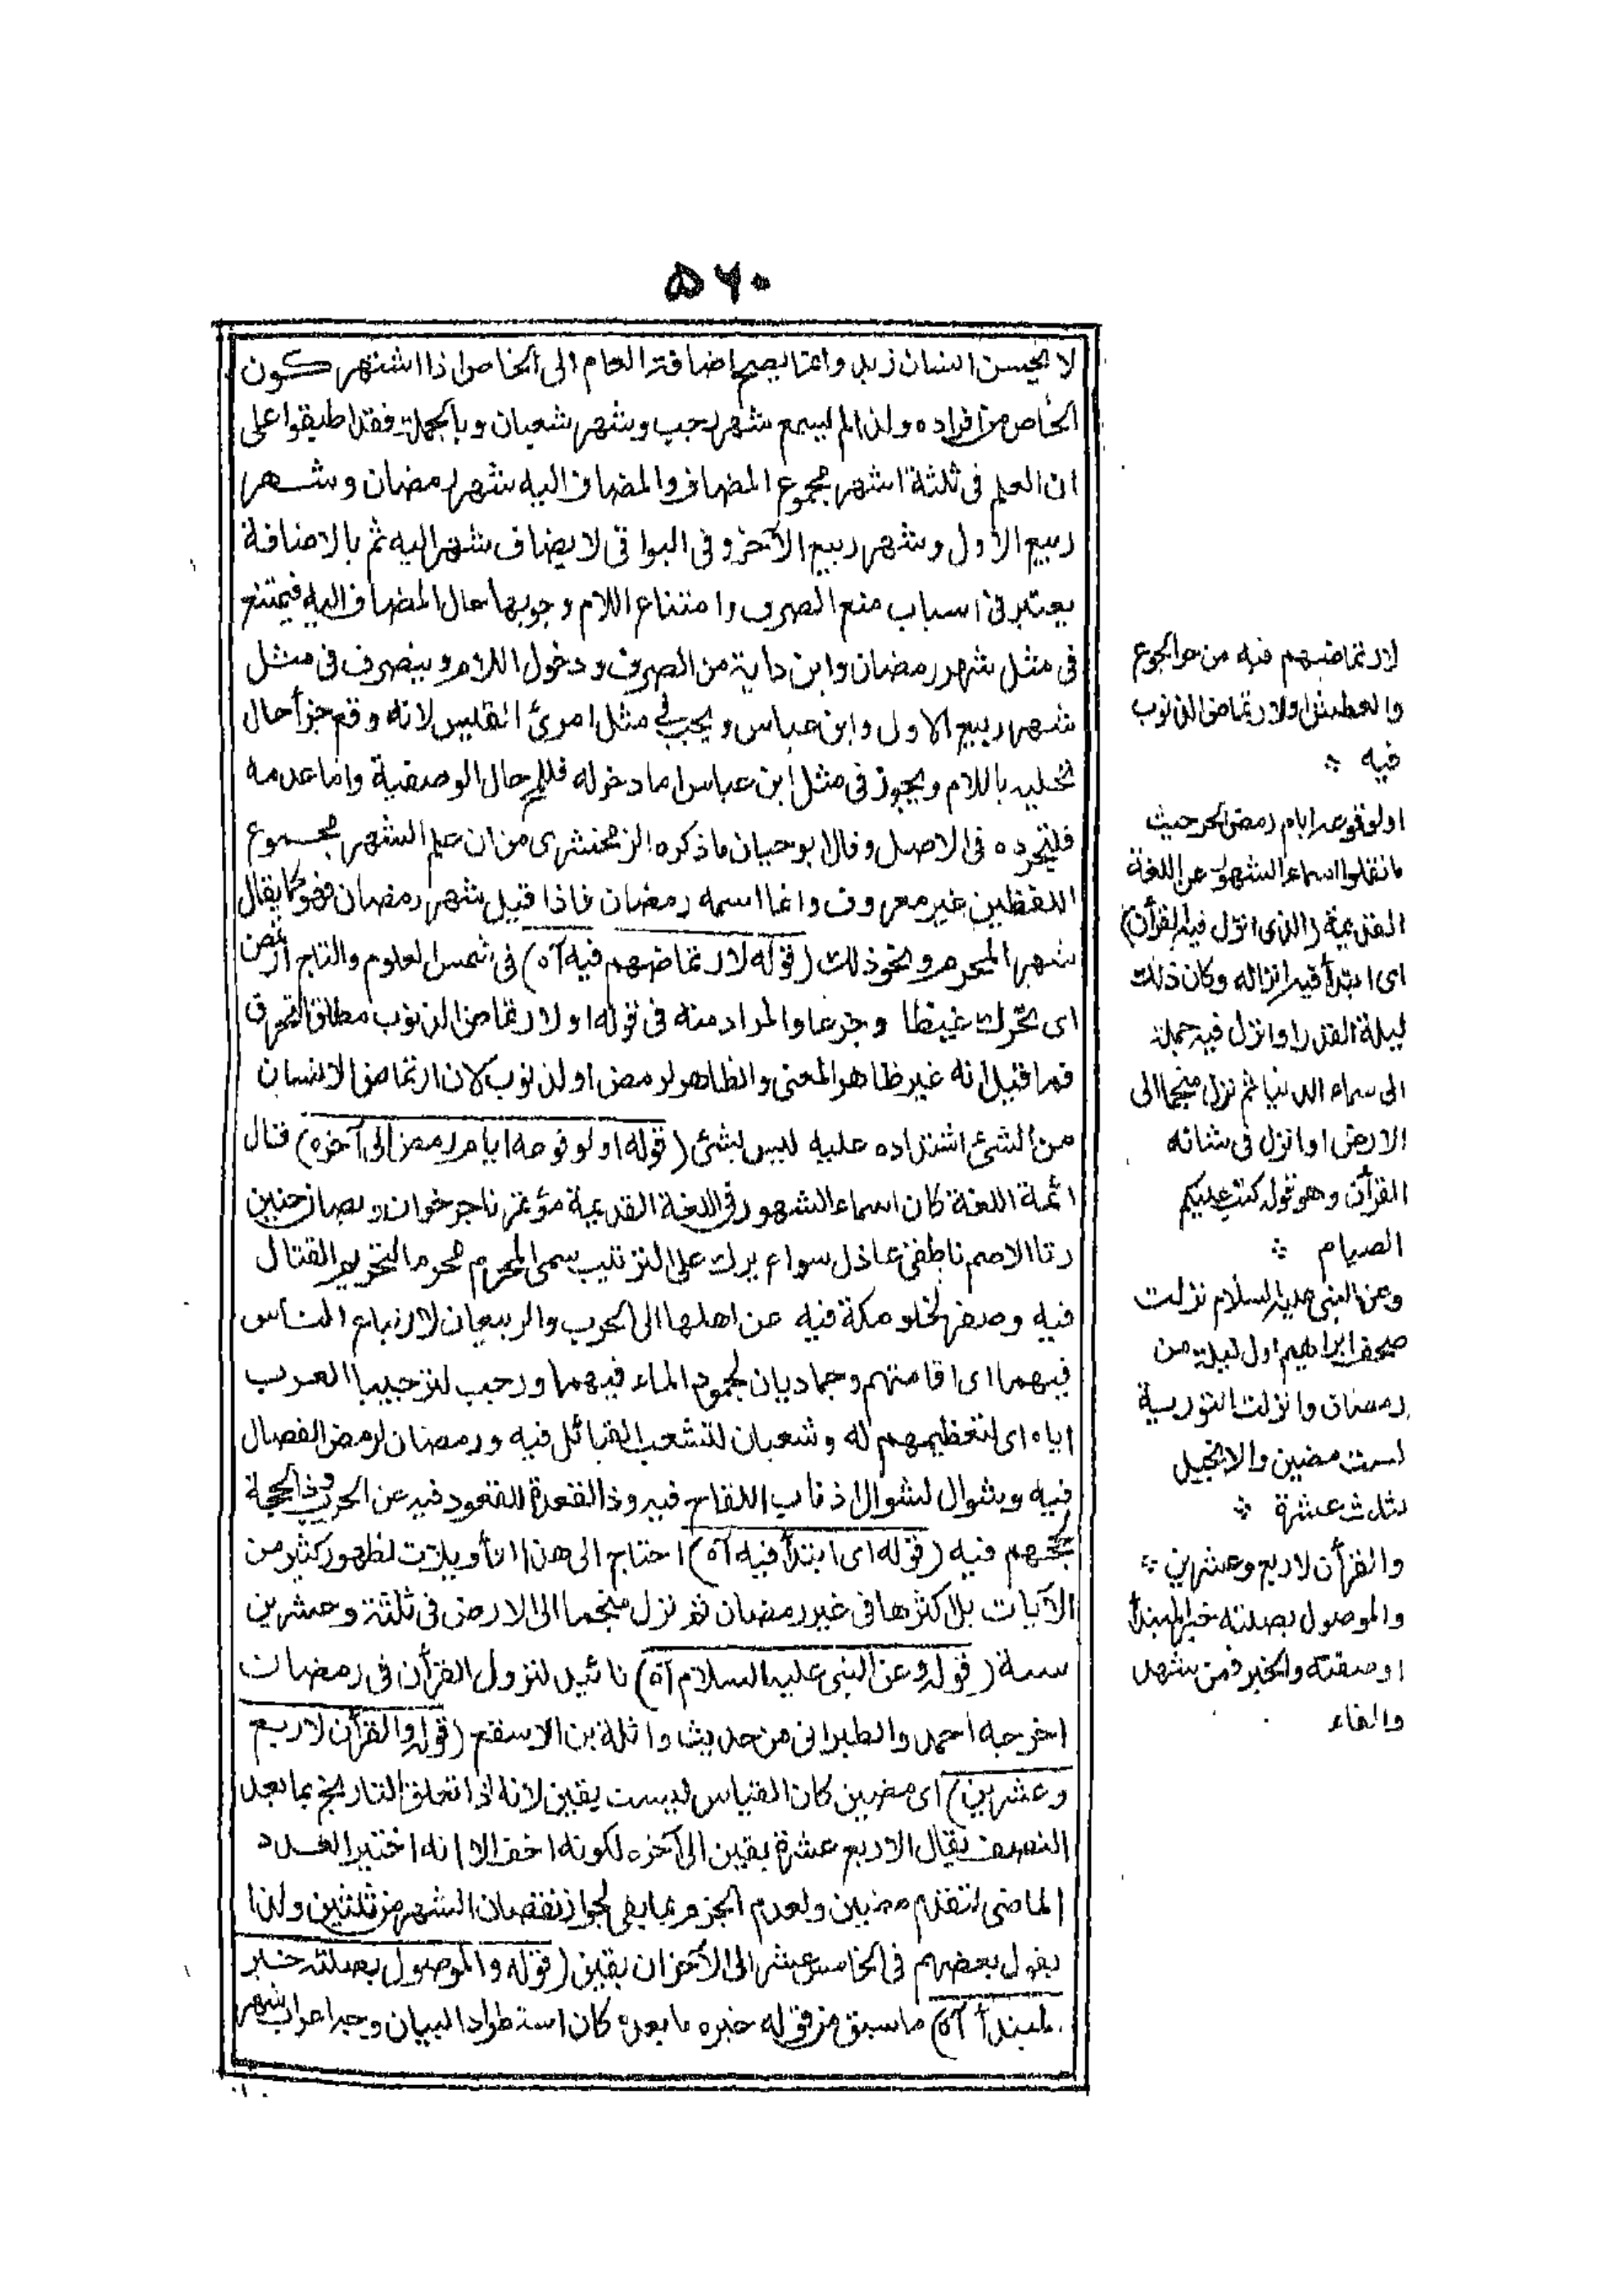 ۵۶۰
لا يحسن انسان زيد وانما يصح اضافة العام الى الخاص اذا اشتهر كون
الخاص من افراده ولذا لم يسمع شهر رجب وشهر شعبان وبالجملة فقد اطبقوا على
ان العلم فى ثلثة اشهر مجموع المضاف والمضاف اليه شهر رمضان وشهر
ربيع الاول وشهر ربيع الآخر وفى البواقى لا يضاف شهر اليه ثم بالاضافة
يعتبر فى اسباب منع الصرف وامتناع اللام وجوبها حال المضاف اليه فيمتنع
فى مثل شهر رمضان وابن داية من الصرف ودخول اللام وينصرف فى مثل
شهر ربيع الاول وابن عباس ويجب فى مثل امرئ القيس لانه وقع جزأ حال
تحليه باللام ويجوز فى مثل ابن عباس اما دخوله فللمح حال الوصفية واما عدمه
فلتجرده فى الاصل وقال ابو حيان ما ذكره الزمخشرى من ان علم الشهر مجموع
اللفظين غير معروف وانما اسمه رمضان فاذا قيل شهر رمضان فهو كما يقال
شهر المحرم ونحو ذلك (قوله لارتماضهم فيه آه) فى شمس العلوم والتاج ارتمض
اى تحرك غيظا وجزعا والمراد منه فى قوله او لارتماض الذنوب مطلق التحرق
فما قيل انه غير ظاهر المعنى والظاهر لرمض او لذنوب لان ارتماض الانسان
من الشئ اشتداده عليه ليس بشئ (قوله او لوقوعه ايام رمض الى آخره) قال
ائمة اللغة كان اسماء الشهور فى اللغة القديمة مؤتمر ناجر خوان وبصان حنين
رنا الاصم ناطق عاذل سواع برك على الترتيب سمى المحرم محرما لتحريم القتال
فيه وصفر لخلو مكة فيه عن اهلها الى الحرب والربيعان لارتباع الناس
فيهما اى اقامتهم وجماديان لجمود الماء فيهما ورجب لترجيب العرب
اياه اى لتعظيمهم له وشعبان لتشعب القبائل فيه ورمضان لرمض الفصال
فيه وشوال لشوال اذناب اللقاح فيه وذا القعدة للقعود فيه عن الحرب وذا الحجة
لحجهم فيه (قوله اى ابتدأ فيه آه) احتاج الى هذا التأويلات لظهور كثير من
الآيات بل اكثرها فى غير رمضان ثم نزل منجما الى الارض فى ثلثة وعشرين
سنة (قوله وعن النبى عليه السلام آه) تائيد لنزول القرآن فى رمضان
اخرجه احمد والطبرانى من حديث واثلة بن الاسقع (قوله والقرآن لاربع
وعشرين) اى مضين كان القياس لست بقين لانه اذا تعلق التاريخ بما بعد
النصف يقال لاربع عشرة بقين الى آخره لكونه اخف الا انه اختير العدد
الماضى لتقدم مضين ولعدم الجزم بما بقى لجواز نقصان الشهر من ثلثين ولذا
يقول بعضهم فى الخامس عشر الى الآخر ان بقين (قوله والموصول بصلته خبر
لمبتدأ آه) ما سبق من قوله خبره ما بعده كان استطرادا لبيان وجه اعراب شهر
لارتماضهم فيه من حر الجوع
والعطش او لارتماض الذنوب
فيه ؞
او لوقوعه ايام رمض الحر حيث
ما نقلوا اسماء الشهور عن اللغة
القديمة (الذى انزل فيه القرآن)
اى ابتدأ فيه انزاله وكان ذلك
ليلة القدر او انزل فيه جملة
الى سماء الدنيا ثم نزل منجما الى
الارض او انزل فى شانه
القرآن وهو قوله كتب عليكم
الصيام ؞
وعن النبى عليه السلام نزلت
صحف ابراهيم اول ليلة من
رمضان وانزلت التورية
لست مضين والانجيل
لثلاث عشرة ؞
والقرآن لاربع وعشرين ؞
والموصول بصلته خبر المبتدأ
او صفته والخبر فمن شهد
والفاء